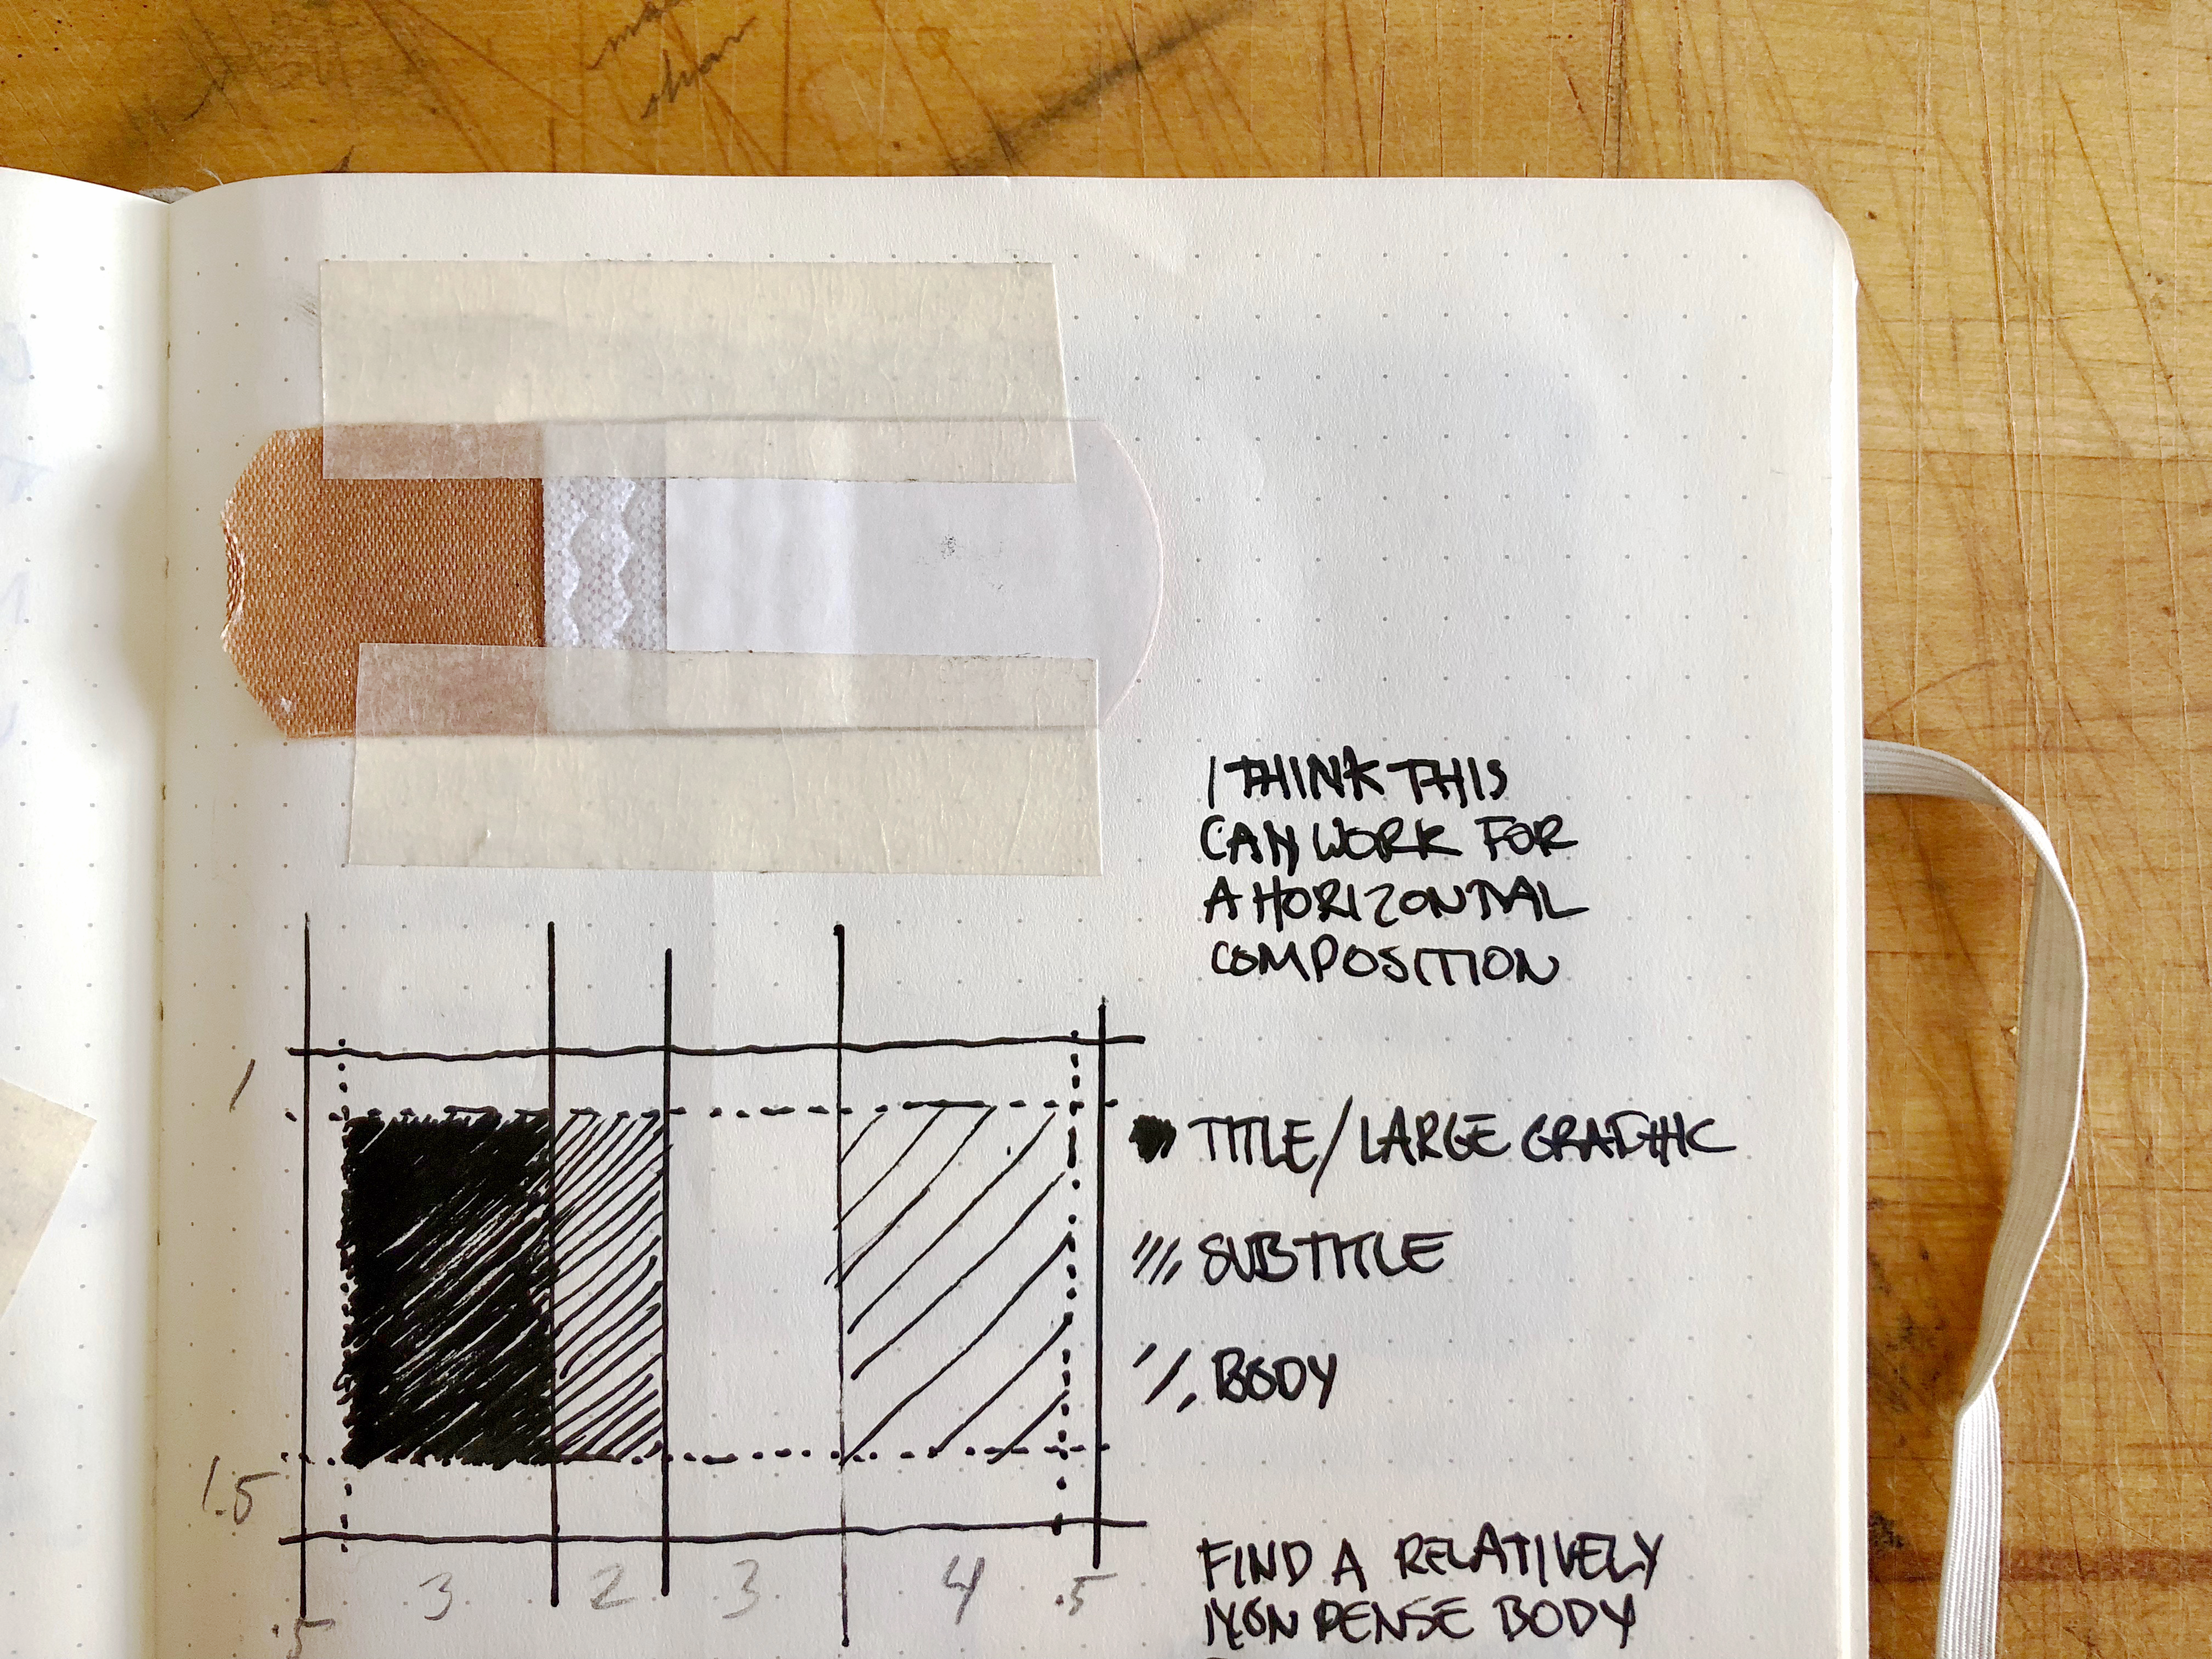 I THINK THIS
CAN WORK FOR
A HORIZONTAL
COMPOSITION
1
TITLE/LARGE GRAPHIC
SUBTITLE
BODY
1.5
.5 3 2 3 4 .5
FIND A RELATIVELY
NON DENSE BODY